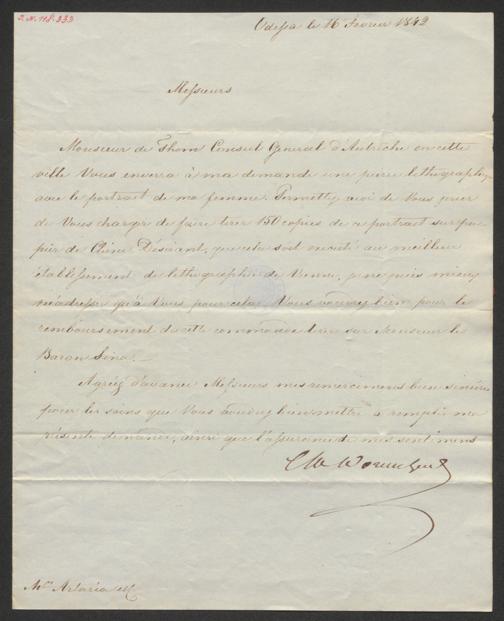 I.N. 118.333
Odessa le 16 Fevrier 1843
Messieurs
Monsieur de Thom Consul General d'Autriche en cette
ville Vous enverra à ma demande une pierre lithographiq
avec le portrait de ma femme. Permettez moi de Vous prier
de Vous charger de faire tirer 150 copies de ce portrait sur pa
pier de Chine. Désirant, que cela soit executé au meilleur
établissement de lithographie de Vienne, je ne puis mieux
m'adresser qu'à Vous pour cela. Vous voudrez bien pour le
remboursement de cette commande tirer sur Monsieur le
Baron Sina. —
Agréez d'avance Messieurs mes remerciments bien sincères
pour les soins que Vous voudrez bien mettre à remplir ma
présente demande, ainsi que l'assurance de mes sentimens
Mrs Artaria et C